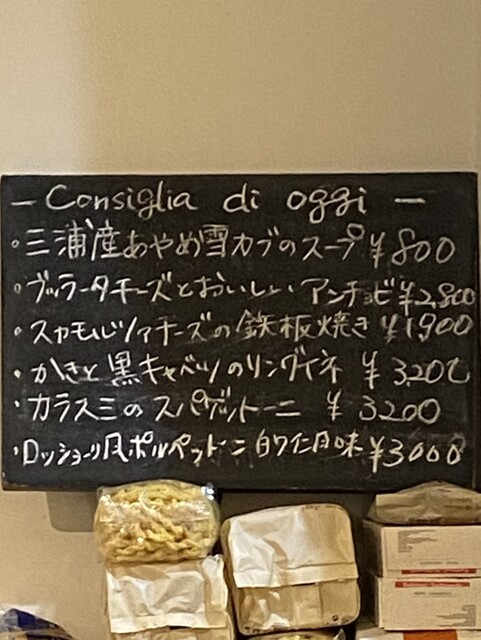 — Consiglia di oggi —
・三浦産あやめ雪カブのスープ ¥800
・ブッラータチーズとおいしいアンチョビ ¥2,800
・スカモルツァチーズの鉄板焼き ¥1900
・かきと黒キャベツのリングイネ ¥3200
・カラスミのスパゲットーニ ¥3200
・ロッショーリ風ポルペットーニ 白ワイン風味 ¥3000